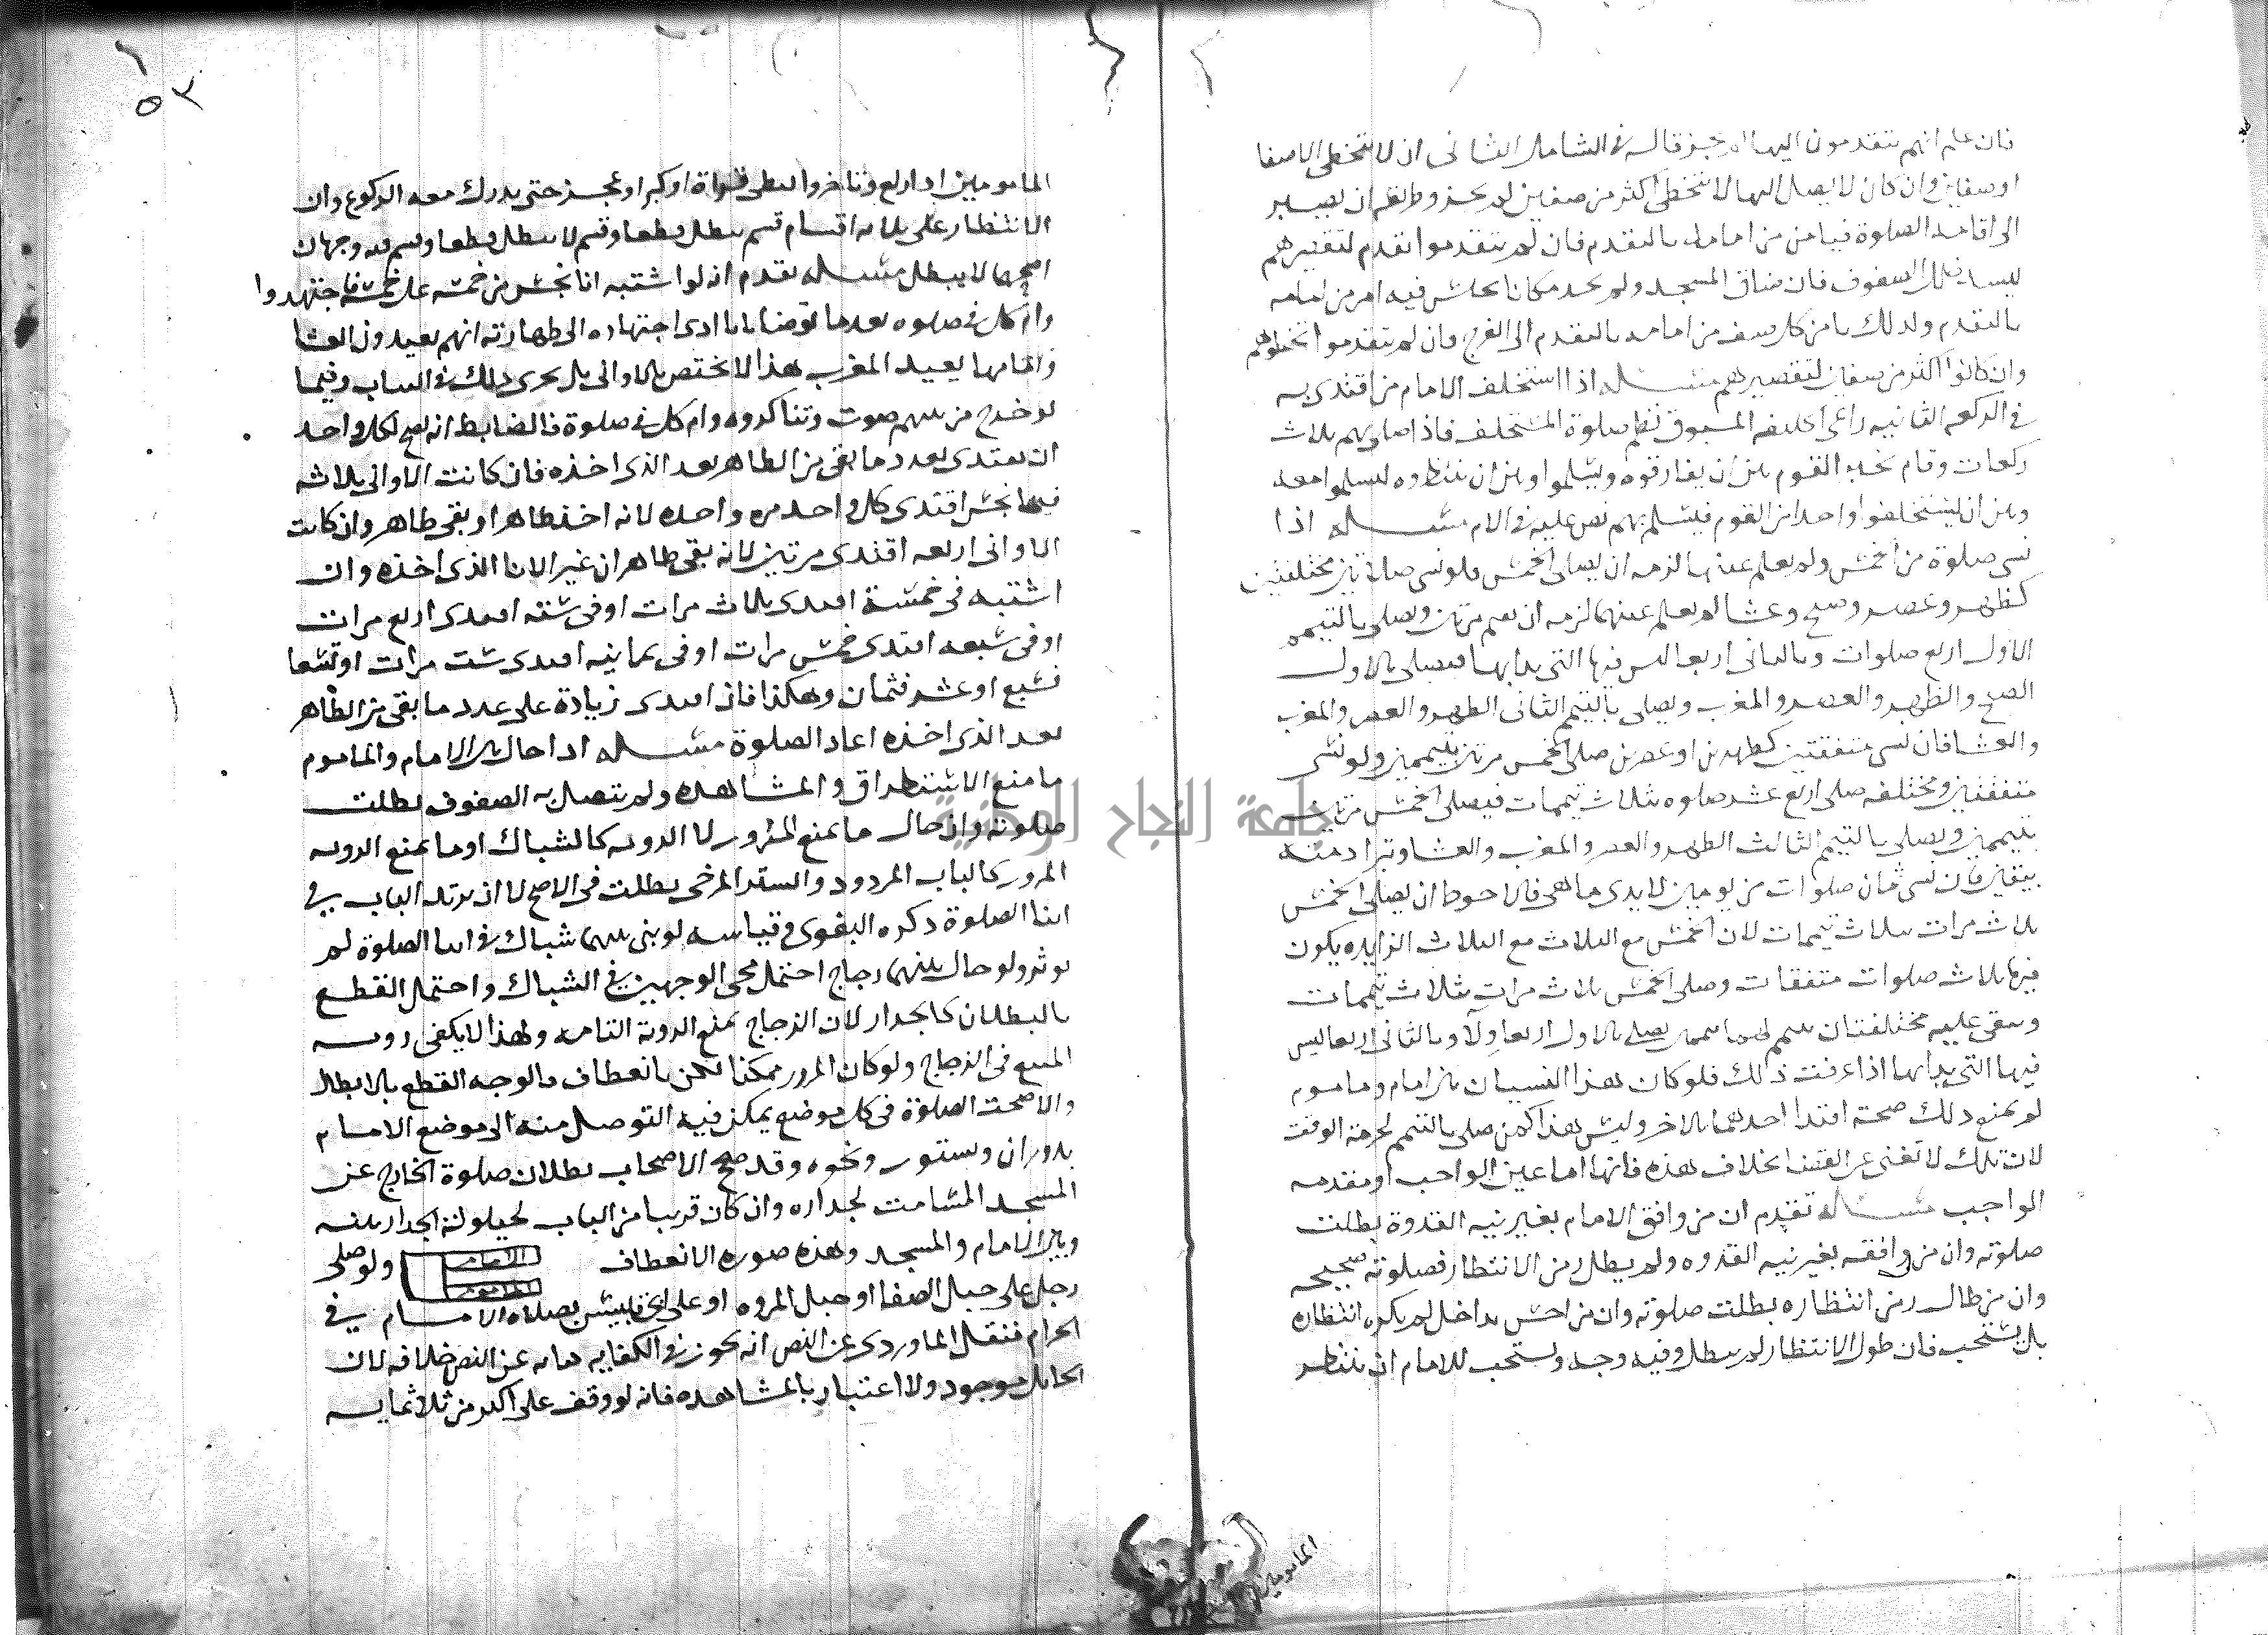 فان علم انهم يتقدمون اليها لم يجز قاله في الشامل الثاني ان لا يتخطى الا صفا
او صفين وان كان لا يصل اليها الا بتخطى أكثر من صفين لم يجز وطريقه ان يصبر
الى اقامة الصلوة فيامر من امامه بالتقدم فان لم يتقدموا تقدم لتقصيرهم
الصفوف فان ضاق المسجد ولم يجد مكانا يجلس فيه امر من امامه
بالتقدم وكذلك يامر كل صف من امامه بالتقدم الى الفرج فان لم يتقدموا تخطاهم
وان كانوا اكثر من صفين لتقصيرهم مسئله اذا استخلف الامام من اقتدى به
في الركعه الثانيه راعى الخليفه المسبوق نظم صلوة المستخلف فاذا صلى بهم ثلاث
ركعات وقام تخير القوم بين ان يفارقوه ويسلموا وبين ان ينتظروه ليسلموا معه
وبين ان يستخلفوا واحدا من القوم فيسلم بهم نص عليه في الام مسئله اذا
نسى صلوة من الخمس ولم يعلم عينها لزمه ان يصلى الخمس فلو نسى صلاتين مختلفتين
كظهر وعصر وصبح وعشا لم يعلم عينهما لزمه ان يتيمم مرتين ويصلى بالتيمم
الاول اربع صلوات وبالثانى اربعا ليس فيها التى بدا بها فيصلى بالاول
الصبح والظهر والعصر والمغرب ويصلى بالتيمم الثانى الظهر والعصر والمغرب
والعشا فان نسى متفقتين كظهرين او عصرين صلى الخمس مرتين بتيممين ولو نسى
متفقتين ومختلفه صلى اربع عشر صلوه بثلاث تيممات فيصلى الخمس مرتين
بتيممين ويصلى بالتيمم الثالث الظهر والعصر والمغرب والعشا وتبرا ذمته
بيقين فان نسى ثمان صلوات من يومين لا يدرى ما هى فالاحوط ان يصلى الخمس
ثلاث مرات بثلاث تيممات لان الخمس مع الثلاث مع الثلاث الزايده يكون
فيها ثلاث صلوات متفقات وصلى الخمس ثلاث مرات بثلاث تيممات
وبقى عليه مختلفتان يتيمم لهما يصلى بالاول اربعا ولاً وبالثانى اربعا ليس
فيها التى بدا بها اذا عرفت ذلك فلو كان هذا النسيان من امام وماموم
لم يمنع ذلك صحة اقتدا احدهما بالاخر وليس هذا كمن صلى بالتيمم لحرمة الوقت
لان تلك لا تغنى عن القضا بخلاف هذه فانها اما عين الواجب او مقدمه
الواجب مسئله تقدم ان من وافق الامام بغير نيه القدوة بطلت
صلوته وان من وافقه بغير نيه القدوه ولم يطل زمن الانتظار فصلوته صحيحه
وان من طال زمن انتظاره بطلت صلوته وان من احس بداخل لم يكره انتظاره
بل يستحب فان طول الانتظار لم يبطل وفيه وجه ويستحب للامام ان ينتظر
المامومين
٥٣
المامومين اذا ركع وتاخروا لبطى قراة او كبر او عجز حتى يدرك معه الركوع وان
الانتظار على ثلاثه اقسام قسم يبطل قطعا وقسم لا يبطل قطعا وقسم فيه وجهان
اصحهما لا يبطل مسئله تقدم انه لو اشتبه انا نجس من خمسه على خمسة فاجتهدوا
وام كل في صلوه بعدما توضا بما ادى اجتهاده الى طهارته انهم يعيدون العشا
وامامها يعيد المغرب هذا لا يختص بالاوانى بل يجرى ذلك في الثياب وفيما
لو خرج من بينهم صوت وتناكروه وام كل في صلوة فالضابط انه يصح لكل واحد
ان يقتدى بعدد ما بقى من الطاهر بعد الذى اخذه فان كانت الاوانى ثلاثه
فيها نجس اقتدى كل واحد مره واحده لانه اخذ طاهرا وبقى طاهر وان كانت
الاوانى اربعه اقتدى مرتين لانه بقى طاهران غير الانا الذى اخذه وان
اشتبه في خمسة اقتدى ثلاث مرات او في سته اقتدى اربع مرات
او في سبعه اقتدى خمس مرات او في ثمانيه اقتدى ست مرات او تسعا
فسبع او عشر فثمان وهكذا فان اقتدى زيادة على عدد ما بقى من الطاهر
بعد الذى اخذه اعاد الصلوة مسئله اذا حال بين الامام والماموم
ما منع الاستطراق والمشاهده ولم يتصل به الصفوف بطلت
صلوته وان حال ما يمنع المرور لا الرويه كالشباك او ما يمنع الرويه
المرور كالباب المردود والستر المرخى بطلت في الاصح لا ان يرتد الباب في
اثنا الصلوة ذكره البغوى وقياسه لو بنى بينهما شباك في اثنا الصلوة لم
يوثر ولو حال بينهما زجاج احتمل مجى الوجهين في الشباك واحتمل القطع
بالبطلان كالجدار لان الزجاج يمنع الروية التامه ولهذا لا يكفى رويه
المبيع في الزجاج ولو كان المرور ممكنا لكن بانعطاف فالوجه القطع بالابطال
والا صحت الصلوة في كل موضع يمكن فيه التوصل منه الى موضع الامام
بدوران وبستور ونحوه وقد صح الاصحاب بطلان صلوة الخارج عن
المسجد المسامت لجداره وان كان قريبا من الباب لحيلولة الجدار بينه
وبين الامام والمسجد وهذه صوره الانعطاف الامام الماموم ولو صلى
رجل على جبل الصفا او جبل المروه او على ابى قبيس بصلاه الامام في
الحرام فنقل الماوردى عن النص انه يجوز في الكفايه عن النص خلافه لان
الحائل موجود ولا اعتبار بالمشاهده فانه لو وقف على اكثر من ثلاثمايه
جامعة النجاح الوطنية